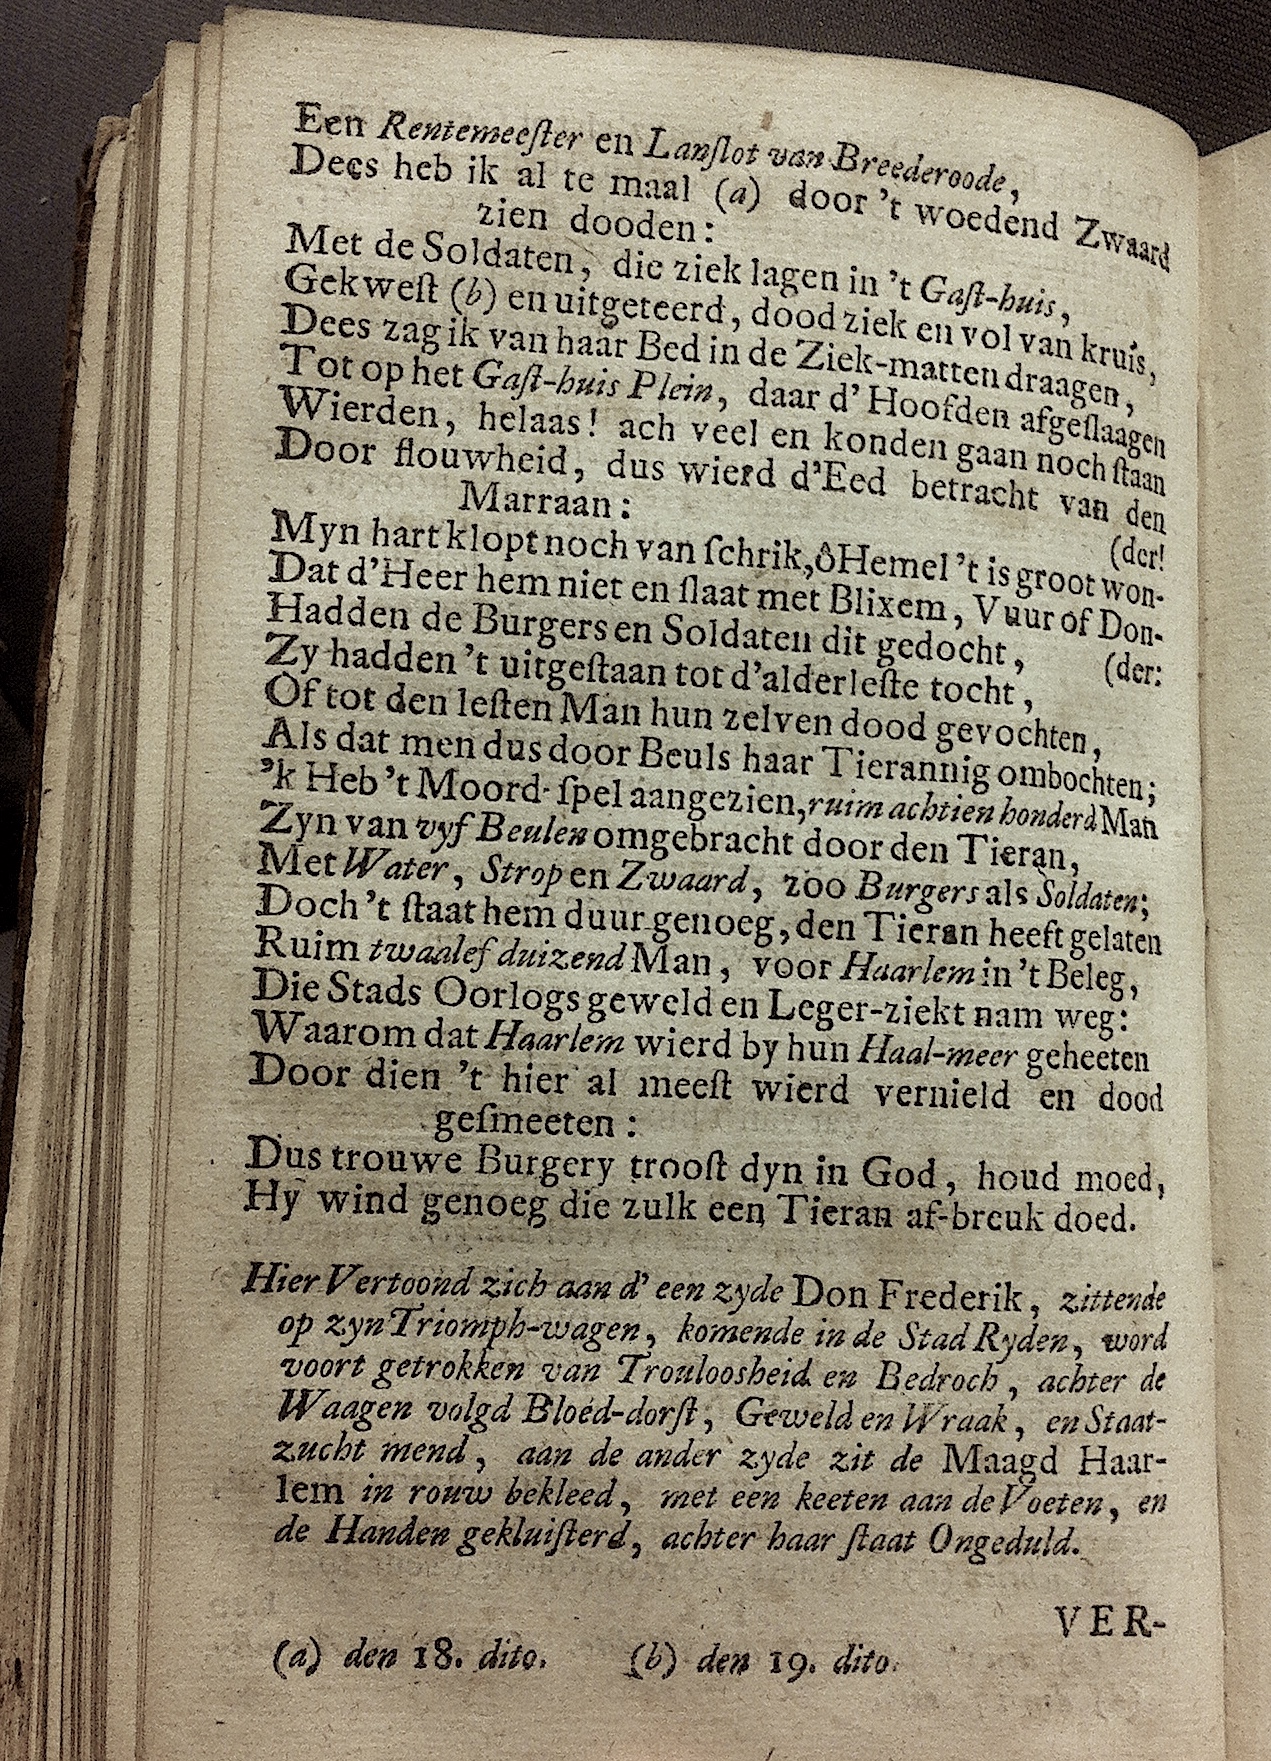 Een Rentemeeſter en Lanſlot van Breederoode,
Dees heb ik al te maal (a) door 't woedend Zwaard
zien dooden:
Met de Soldaten, die ziek lagen in 't Gaſt-huis,
Gekweſt (b) en uitgeteerd, dood ziek en vol van kruis,
Dees zag ik van haar Bed in de Ziek-matten draagen,
Tot op het Gaſt-huis Plein, daar d' Hoofden afgeſlaagen
Wierden, helaas! ach veel en konden gaan noch ſtaan
Door flouwheid, dus wierd d'Eed betracht van den
Marraan:
(der!
Myn hart klopt noch van ſchrik, ô Hemel 't is groot won-
Dat d'Heer hem niet en ſlaat met Blixem, Vuur of Don-
Hadden de Burgers en Soldaten dit gedocht, (der:
Zy hadden 't uitgeſtaan tot d'alderleſte tocht,
Of tot den leſten Man hun zelven dood gevochten,
Als dat men dus door Beuls haar Tierannig ombochten;
'k Heb 't Moord-ſpel aangezien, ruim achtien honderd Man
Zyn van vyf Beulen omgebracht door den Tieran,
Met Water, Strop en Zwaard, zoo Burgers als Soldaten;
Doch 't ſtaat hem duur genoeg, den Tieran heeft gelaten
Ruim twaalef duizend Man, voor Haarlem in 't Beleg,
Die Stads Oorlogs geweld en Leger-ziekt nam weg:
Waarom dat Haarlem wierd by hun Haal-meer geheeten
Door dien 't hier al meeſt wierd vernield en dood
geſmeeten:
Dus trouwe Burgery trooſt dyn in God, houd moed,
Hy wind genoeg die zulk een Tieran af-breuk doed.
Hier Vertoond zich aan d' een zyde Don Frederik, zittende
op zyn Triomph-wagen, komende in de Stad Ryden, word
voort getrokken van Trouloosheid en Bedroch, achter de
Waagen volgd Bloed-dorſt, Geweld en Wraak, en Staat-
zucht mend, aan de ander zyde zit de Maagd Haar-
lem in rouw bekleed, met een keeten aan de Voeten, en
de Handen gekluiſterd, achter haar ſtaat Ongeduld.
VER-
(a) den 18. dito. (b) den 19. dito.